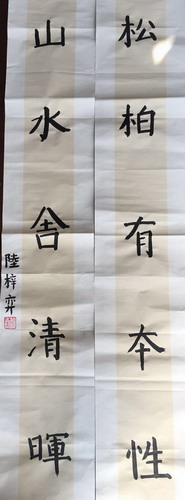 松柏有本性
山水含清暉
陸梓弈